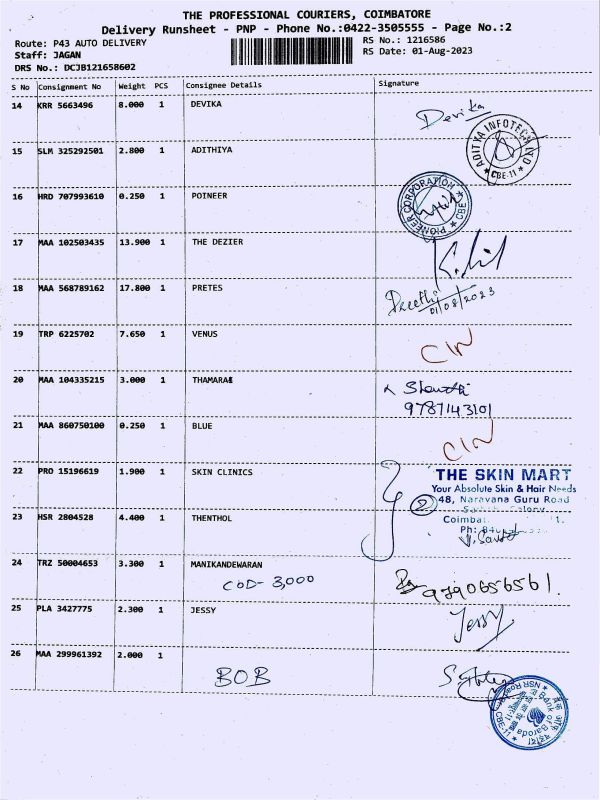 THE PROFESSIONAL COURIERS, COIMBATORE
Delivery Runsheet - PNP - Phone No.:0422-3505555 - Page No.:2
Route: P43 AUTO DELIVERY
RS No.: 1216586
Staff: JAGAN
RS Date: 01-Aug-2023
DRS No.: DCJB121658602
S No Consignment No Weight PCS Consignee Details Signature
14 KRR 5663496 8.000 1 DEVIKA Devika
ADITYA INFOTECH IND
CBE-11
15 SLM 325292501 2.800 1 ADITHIYA
16 HRD 707993610 0.250 1 POINEER
PIONEER CORPORATION
CBE
17 MAA 102503435 13.900 1 THE DEZIER
18 MAA 568789162 17.800 1 PRETES
01/08/2023
19 TRP 6225702 7.650 1 VENUS
20 MAA 104335215 3.000 1 THAMARAE
9787143101
21 MAA 860750100 0.250 1 BLUE
22 PRO 15196619 1.900 1 SKIN CLINICS
THE SKIN MART
Your Absolute Skin & Hair Needs
2 48, Narayana Guru Road
23 HSR 2804528 4.400 1 THENTHOL
24 TRZ 50004653 3.300 1 MANIKANDEWARAN
COD- 3,000
9790656561.
25 PLA 3427775 2.300 1 JESSY Jessy
26 MAA 299961392 2.000 1
BOB
Bank of Baroda
NSR Road
CBE-11